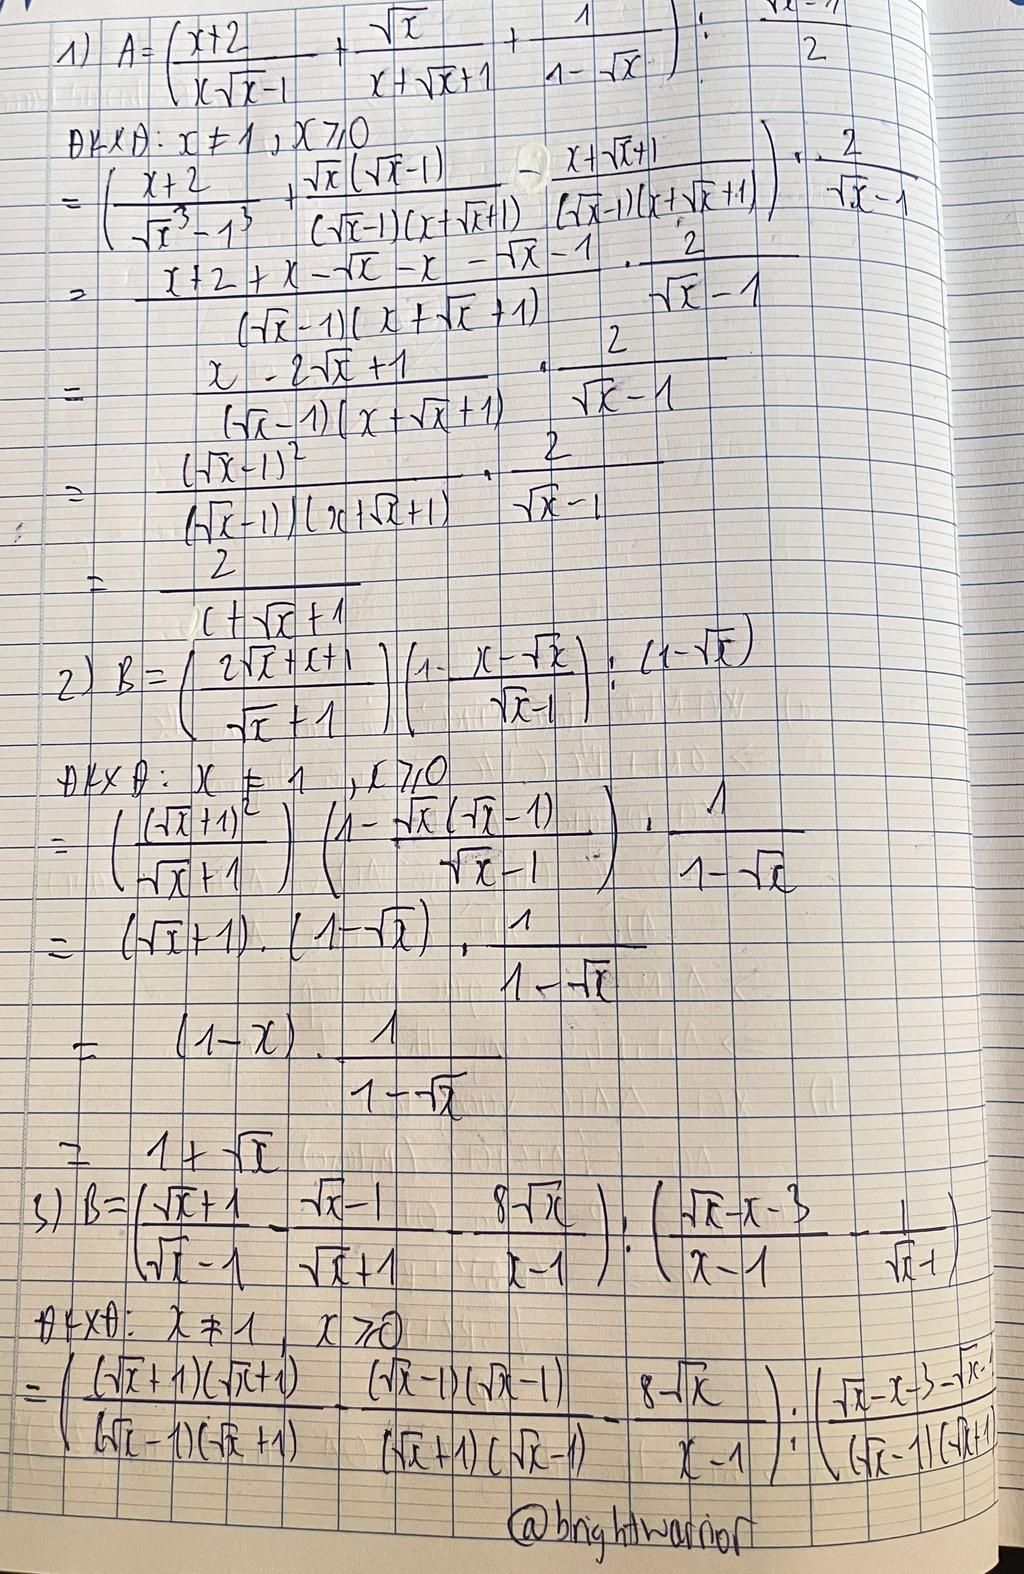 1) A = ( (x+2)/(x√x-1) + √x/(x+√x+1) + 1/(1-√x) ) : (√x-1)/2
ĐKXĐ: x ≠ 1, x ⩾ 0
= ( (x+2)/(√x³-1³) + √x(√x-1)/((√x-1)(x+√x+1)) - (x+√x+1)/((√x-1)(x+√x+1)) ) . 2/(√x-1)
= (x+2+x-√x-x-√x-1)/((√x-1)(x+√x+1)) . 2/(√x-1)
= (x-2√x+1)/((√x-1)(x+√x+1)) . 2/(√x-1)
= (√x-1)²/((√x-1)(x+√x+1)) . 2/(√x-1)
= 2/(x+√x+1)
2) B = ( (2√x+x+1)/(√x+1) ) ( 1 - (x-√x)/(√x-1) ) : (1-√x)
ĐKXĐ: x ≠ 1, x ⩾ 0
= ( (√x+1)²/(√x+1) ) ( 1 - √x(√x-1)/(√x-1) ) . 1/(1-√x)
= (√x+1) . (1-√x) . 1/(1-√x)
= (1-x) . 1/(1-√x)
= 1+√x
3) B = ( (√x+1)/(√x-1) - (√x-1)/(√x+1) - 8√x/(x-1) ) : ( (√x-x-3)/(x-1) - 1/(√x-1) )
ĐKXĐ: x ≠ 1, x ⩾ 0
= ( (√x+1)(√x+1)/((√x-1)(√x+1)) - (√x-1)(√x-1)/((√x+1)(√x-1)) - 8√x/(x-1) ) : ( (√x-x-3-√x-1)/((√x-1)(√x+1)
@brightwarrior